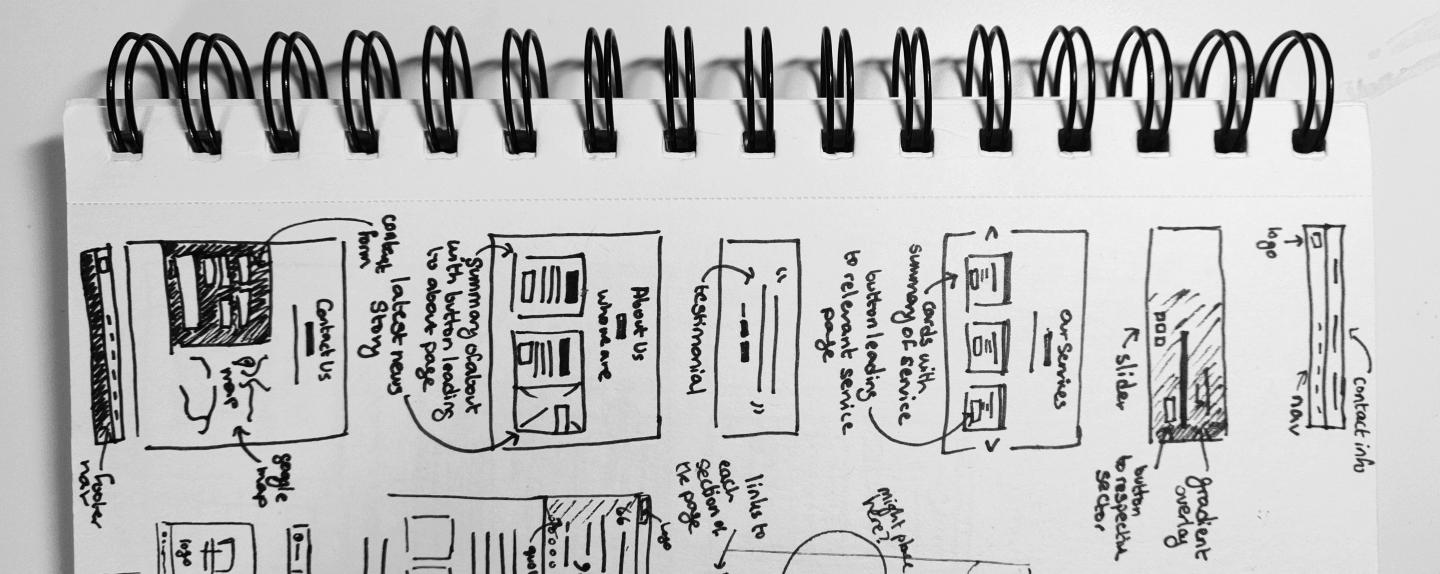 contact info
logo
nav
gradient
overlay
button
to respective
sector
slider
Our Services
cards with
summary of service
button leading
to relevant service
page
“
”
testimonial
About Us
who we are
summary of about
with button leading
to about page
latest news
story
Contact Us
contact
form
map
google
map
footer
nav
might place
here?
links to
each
section of
the page
logo
“
logo